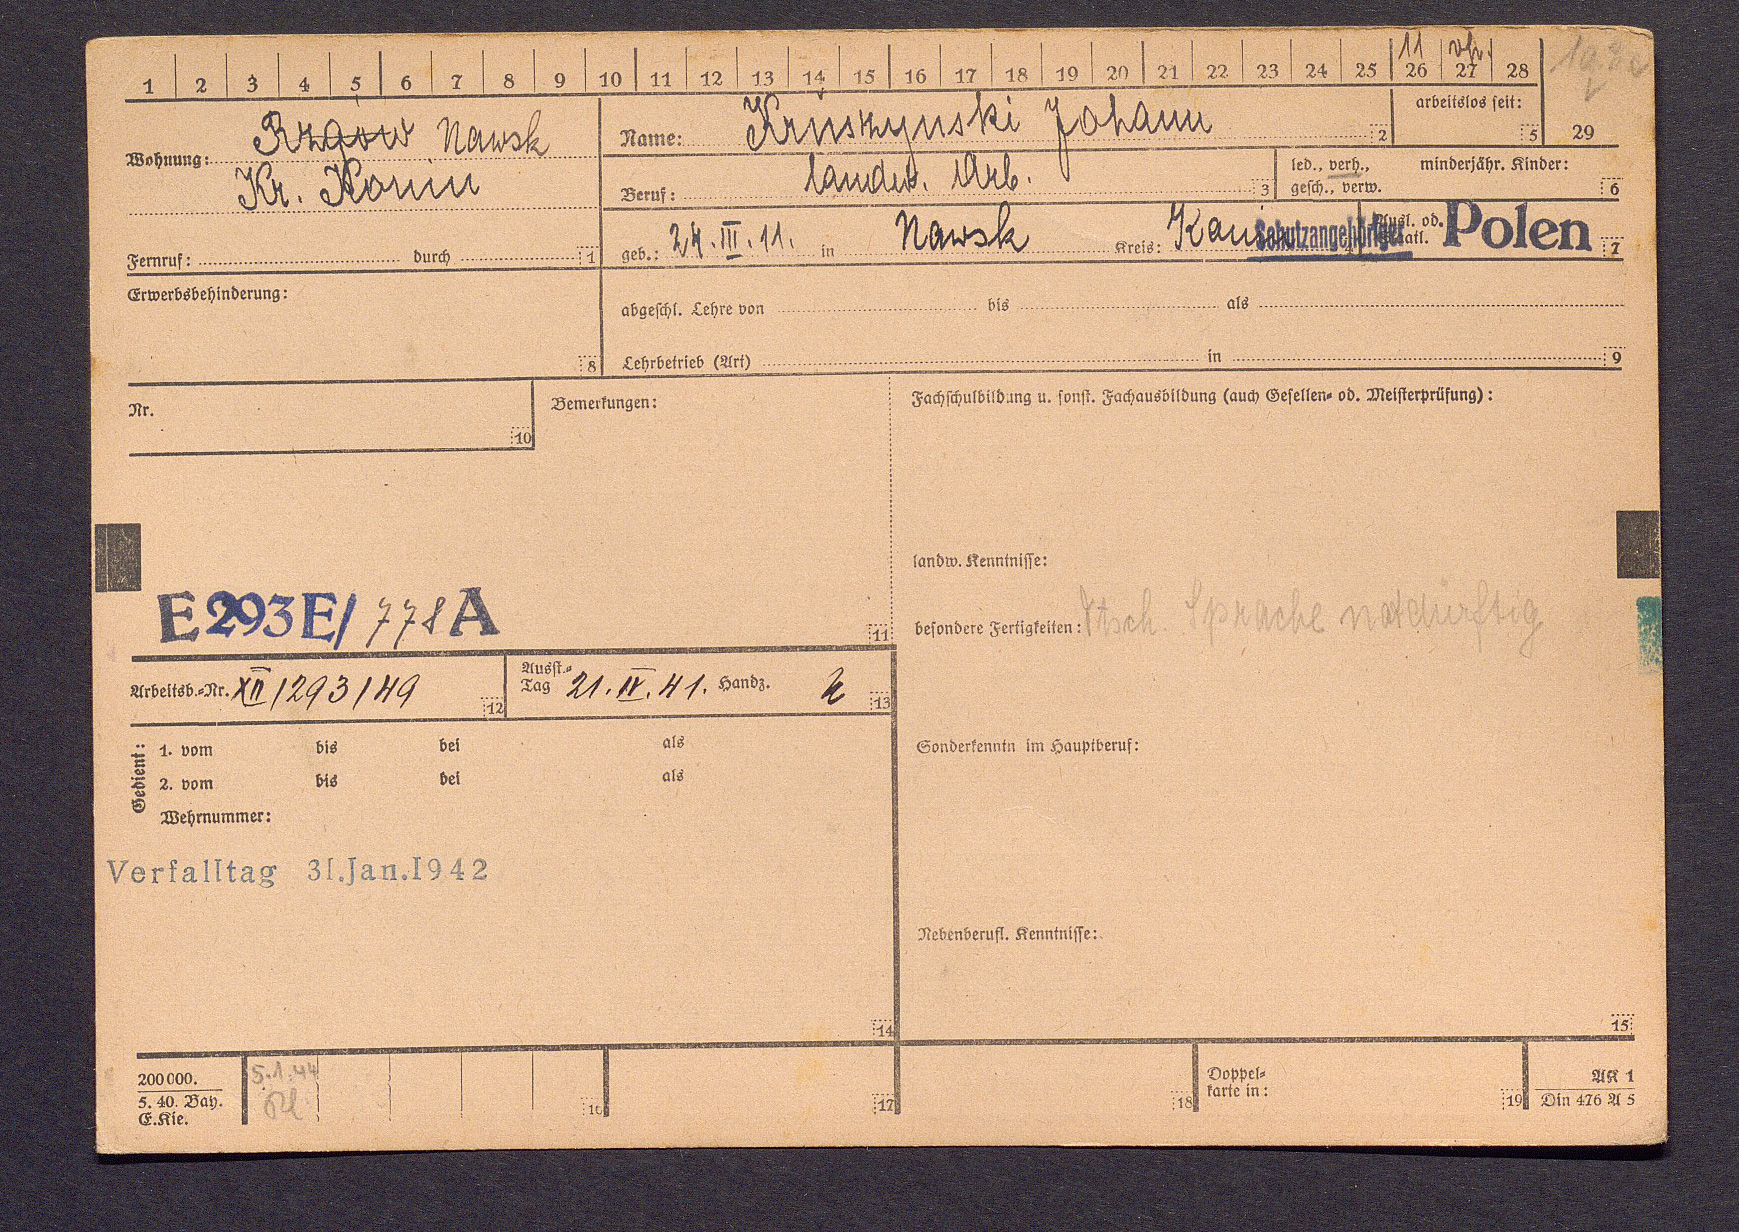 1 2 3 4 5 6 7 8 9 10 11 12 13 14 15 16 17 18 19 20 21 22 23 24 25 26 27 28 29
11
Wohnung: Rzgow Nawsk
Kr. Konin
Fernruf: durch 1
Name: Kruszynski Johann 2
arbeitslos seit: 5
Beruf: landw. Arb. 3
led., verh., gesch., verw.
minderjähr. Kinder: 6
geb.: 24.III.11. in Nawsk Kreis:
Schutzangehöriger
Polen 7
Erwerbsbehinderung: 8
abgeschl. Lehre von bis als
Lehrbetrieb (Art) in 9
Nr. 10
Bemerkungen:
Fachschulbildung u. sonst. Fachausbildung (auch Gesellen- od. Meisterprüfung):
landw. Kenntnisse:
besondere Fertigkeiten: dtsch. Sprache notdürftig
E 293 E/ 778 A
11
Arbeitsb.-Nr. XII/293/49 12
Ausst.-Tag 21.IV.41. Handz. 13
Gedient:
1. vom bis bei als
2. vom bis bei als
Wehrnummer:
Sonderkenntn im Hauptberuf:
Verfalltag 31.Jan.1942
Nebenberufl. Kenntnisse:
14
15
200000.
5. 40. Bay.
E.Kie.
5.1.44
16
17
18
Doppel-
karte in: 19
AK 1
Din 476 A 5